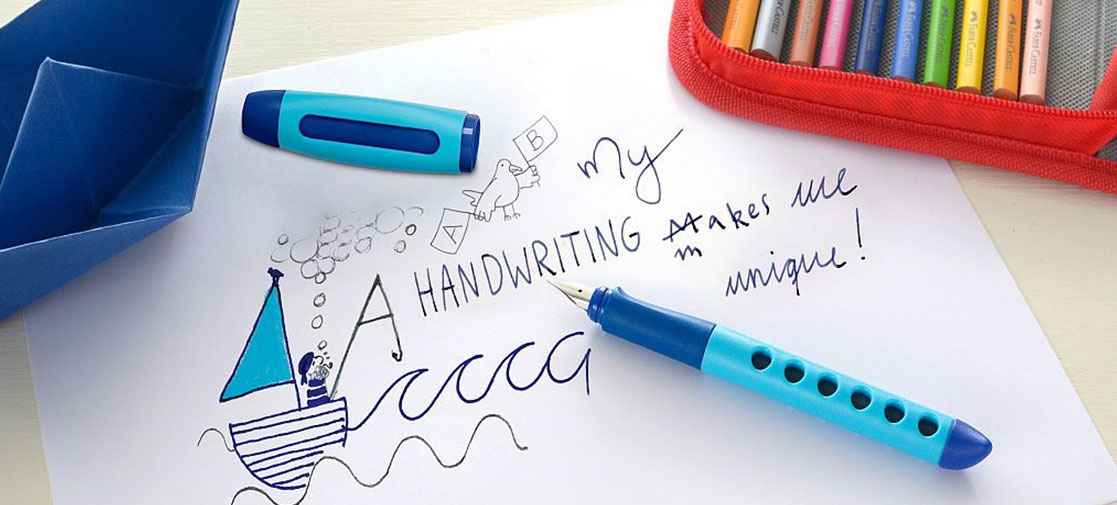 My
HANDWRITING Makes me
m
unique!
A
B
A
FABER-CASTELL
FABER-CASTELL
FABER-CASTELL
FABER-CASTELL